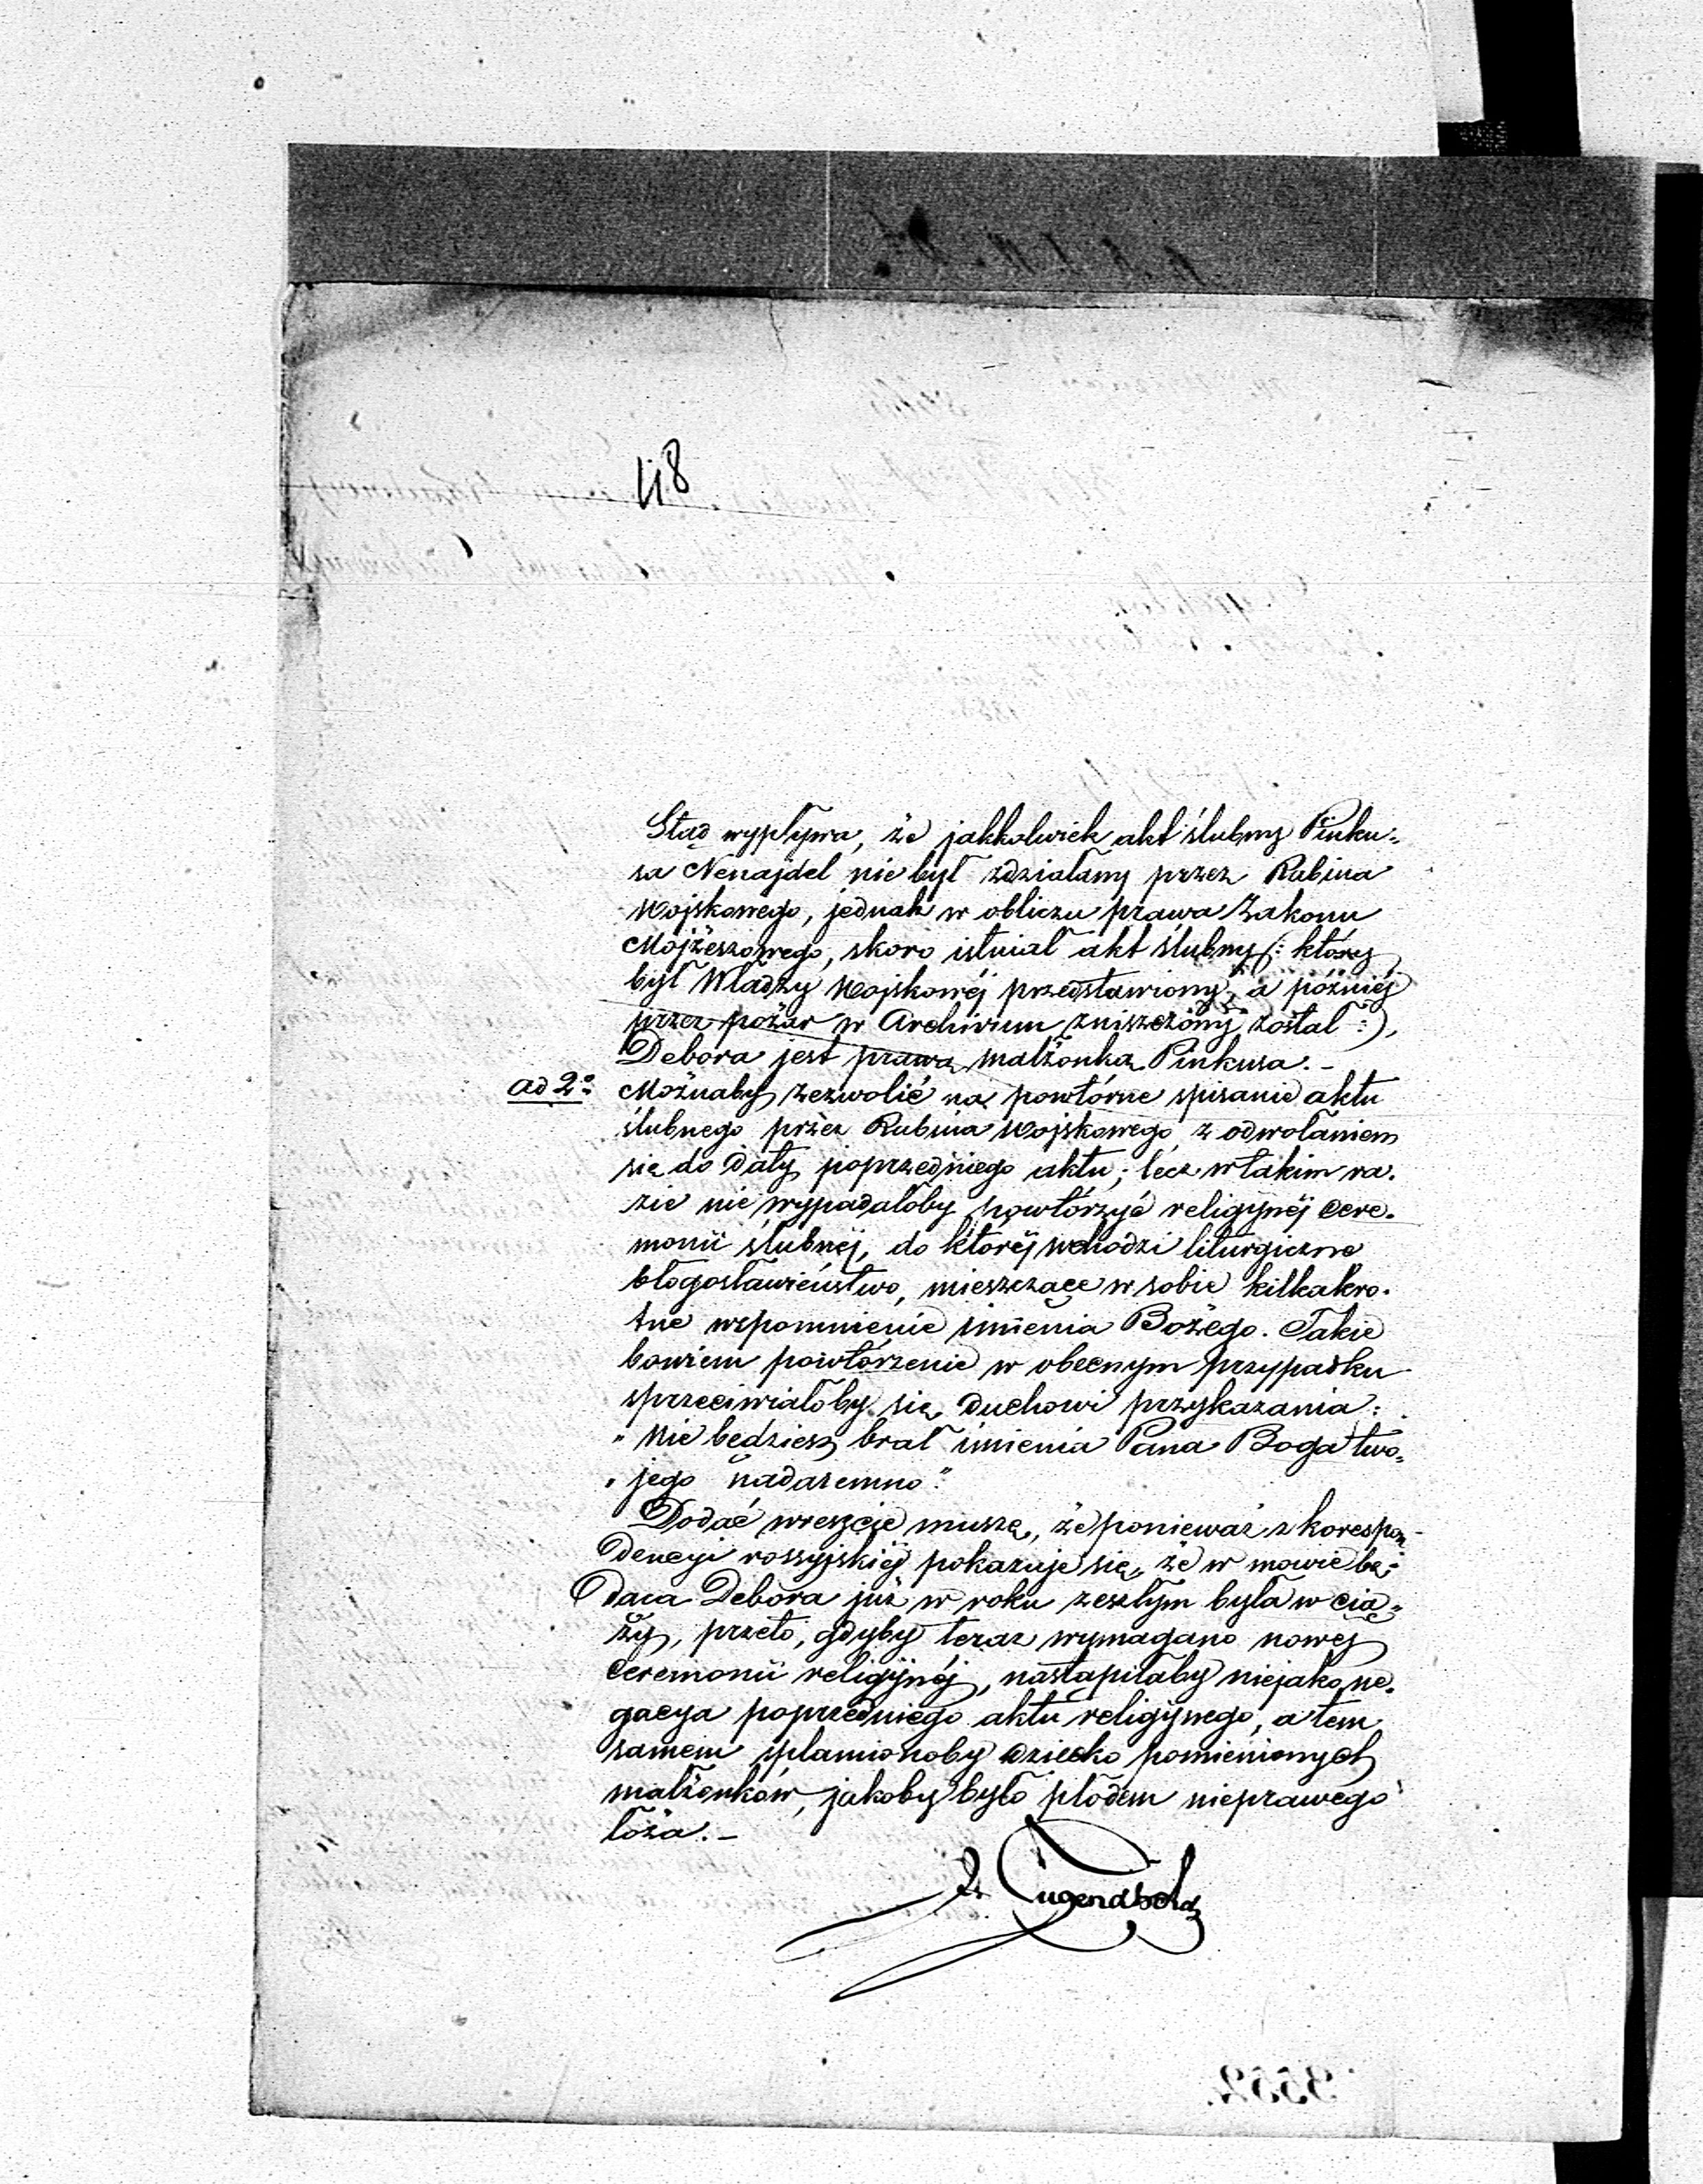 118
Stąd wypływa, że jakkolwiek akt ślubny Pinku-
sa Nenajdel nie był zdziałany przez Rabina
wojskowego, jednak w obliczu prawa Zakonu
Mojżeszowego, skoro istniał akt ślubny (: który
był Władzy wojskowéj przedstawiony, a późniéj
przez pożar w Archivum zniszczony został :),
Debora jest prawą małżonką Pinkusa. –
ad 2o Możnaby zezwolić na powtórne spisanie aktu
ślubnego przez Rabina wojskowego z odwołaniem
się do daty poprzedniego aktu; lecz w takim ra-
zie nie wypadałoby powtórzyć religijnéj cere-
monii ślubnéj, do któréj wchodzi liturgiczne
błogosławieństwo, mieszczące w sobie kilkakro-
tne wspomnienie imienia Bożego. Takie
bowiem powtórzenie w obecnym przypadku
sprzeciwiałoby się duchowi przykazania:
„Nie będziesz brał imienia Pana Boga two-
„jego nadaremno“.
Dodać wreszcie muszę, że ponieważ z korespon-
dencyi rossyjskiéj pokazuje się, że w mowie bę-
dąca Debora już w roku zeszłym była w cią-
ży, przeto, gdyby teraz wymagano nowéj
ceremonii religijnéj, nastąpiłaby niejako ne-
gacya poprzedniego aktu religijnego, a tem
samem splamionoby dziecko pomienionych
małżonków, jakoby było płodem nieprawego
łoża. –
J. Tugendhold
3552.